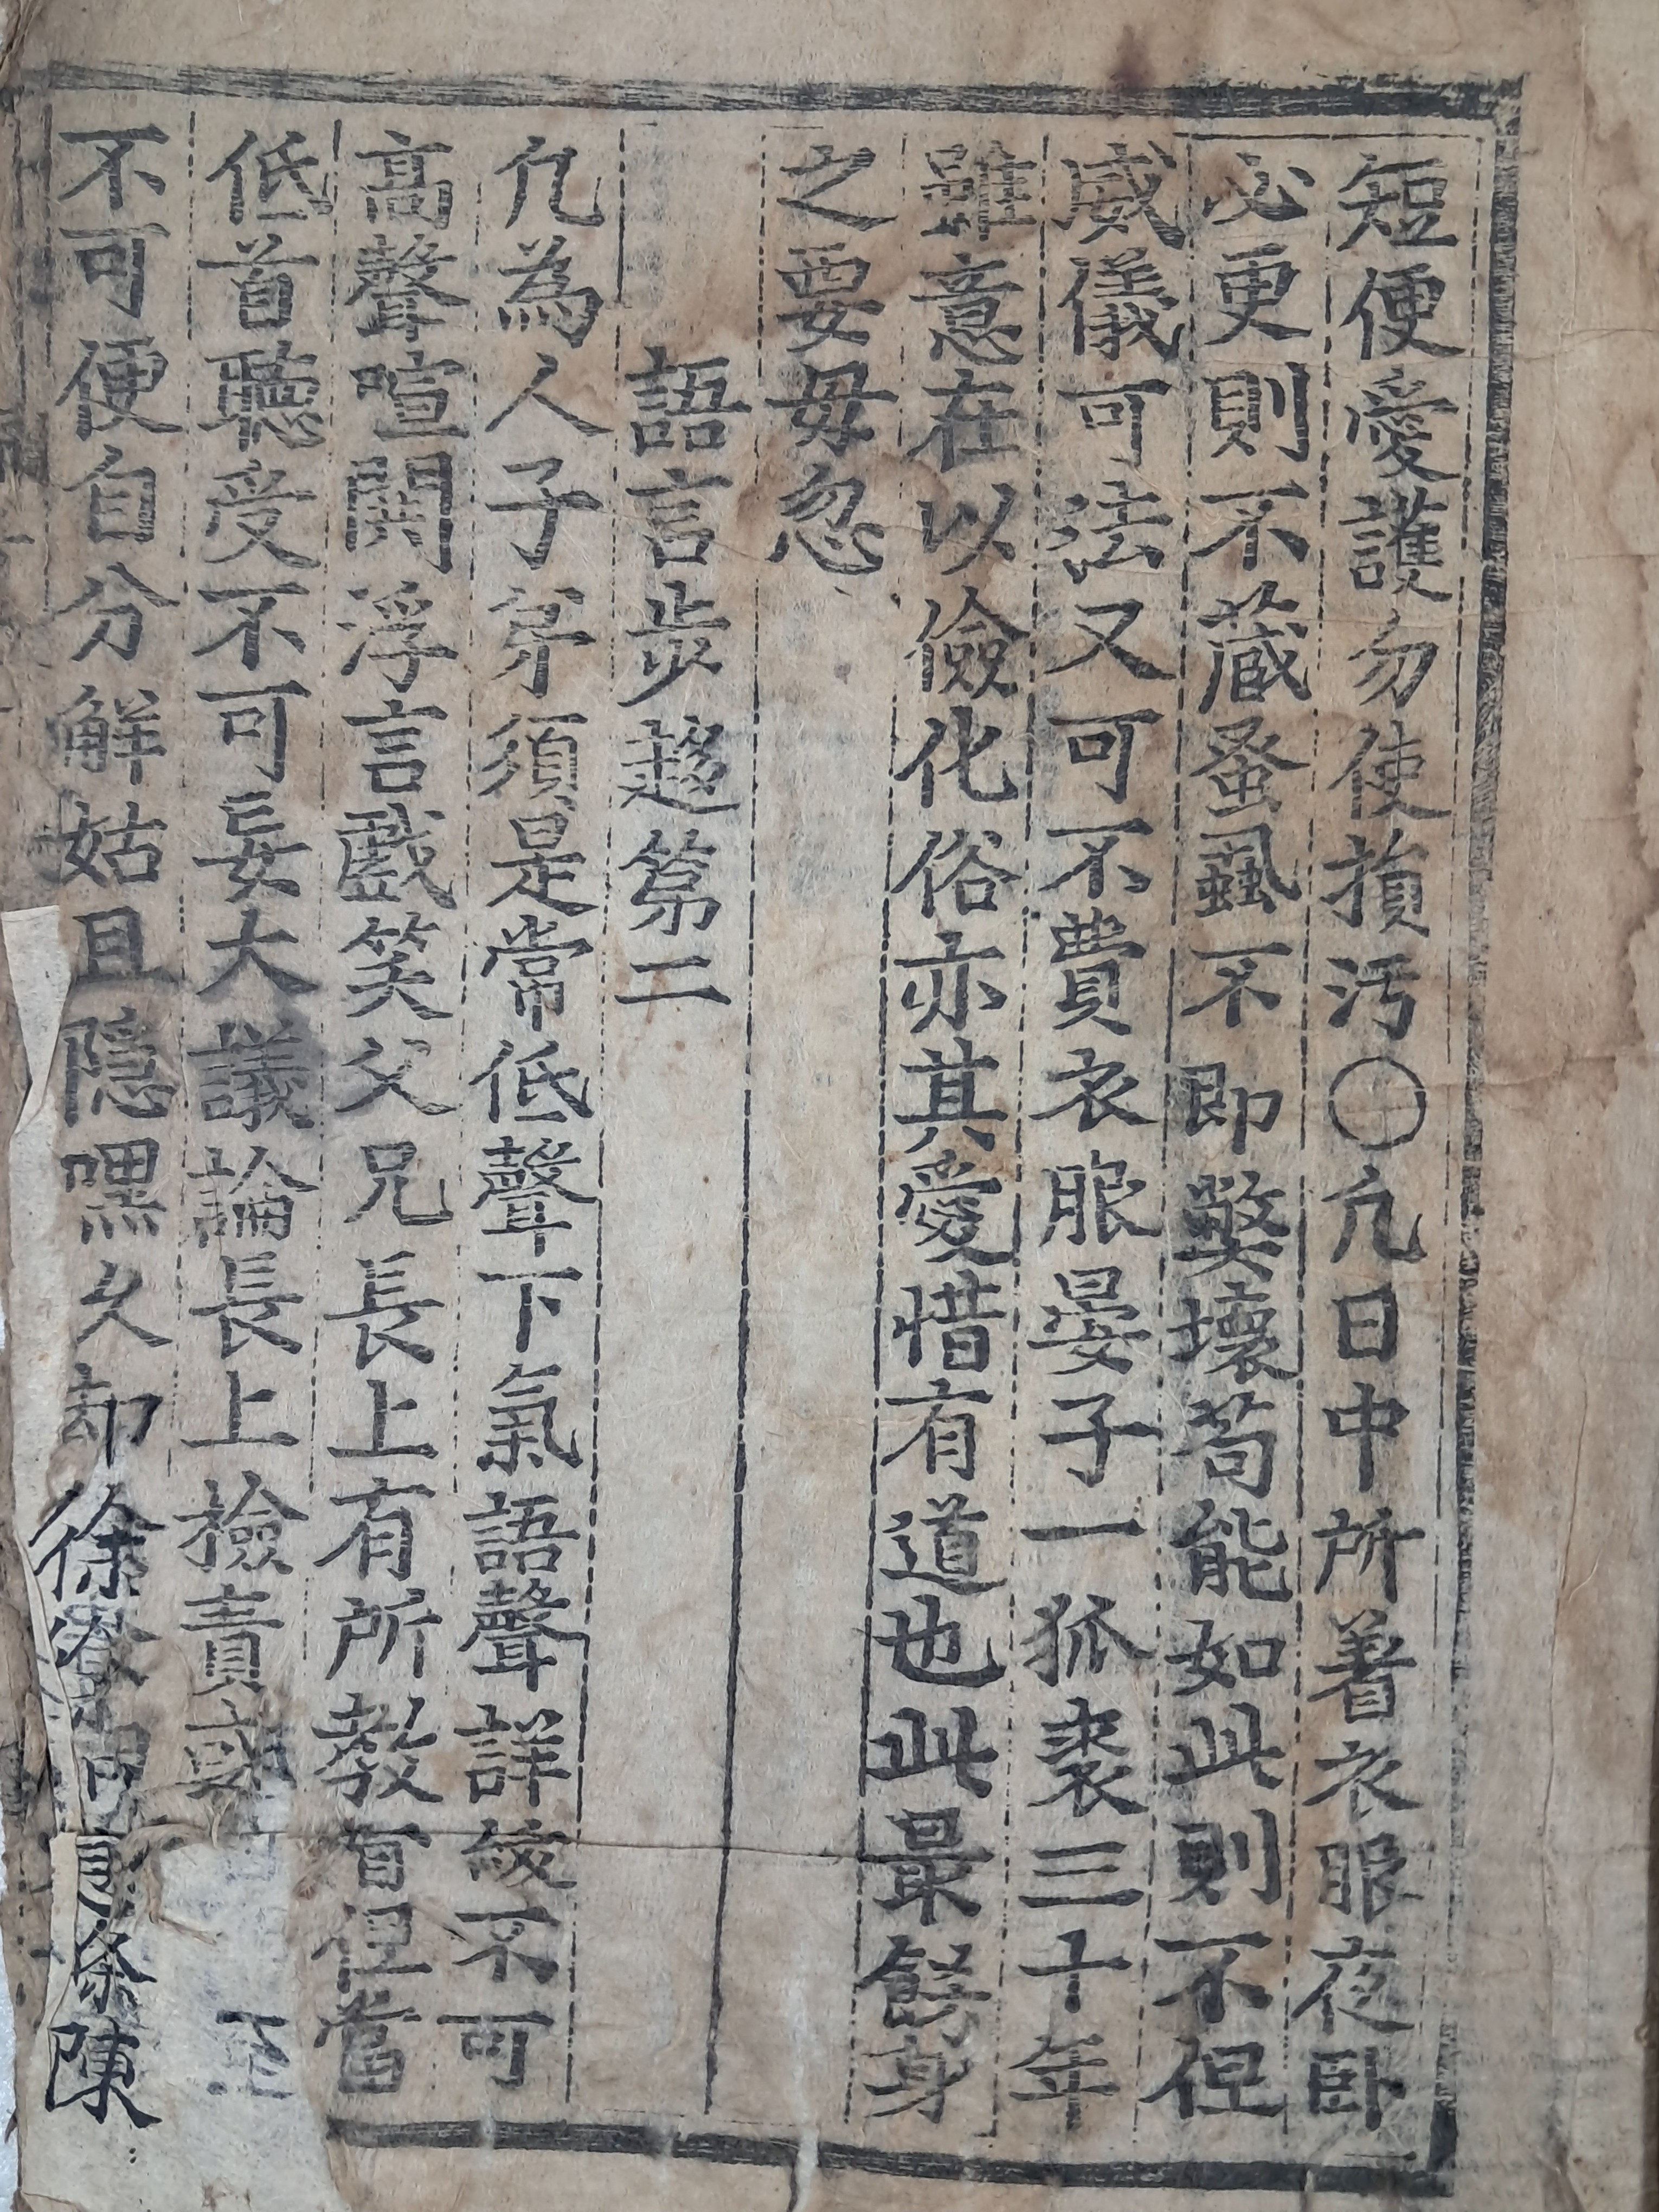 短便愛護勿使損汚〇凢日中所着衣服夜卧
必更則不蔵蚤蝨不即弊壞苟能如此則不但
威儀可法又可不費衣服晏子一狐裘三十年
雖意在以儉化俗亦其愛惜有道也此最飭身
之要毋忽
語言步趨第二
凢為人子弟須是常低聲下氣語聲詳緩不可
高聲喧鬨浮言戲笑父兄長上有所教督但當
低首聽受不可妄大議論長上檢責或
不可便自分解姑且隠嘿久却徐 條陳